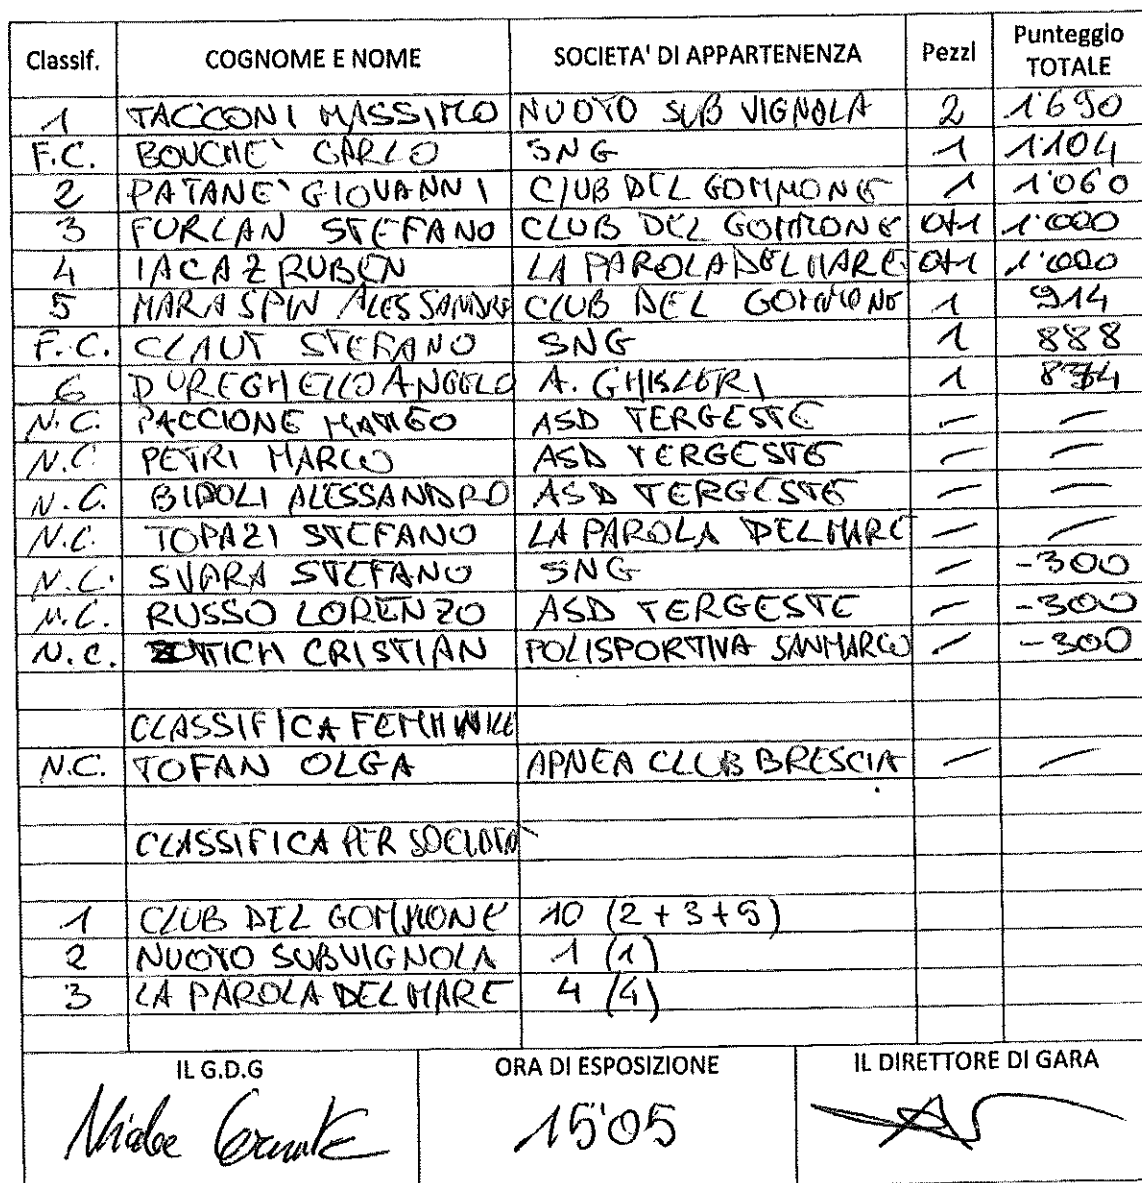 Classif. COGNOME E NOME SOCIETA' DI APPARTENENZA Pezzi Punteggio TOTALE
1 TACCONI MASSIMO NUOTO SUB VIGNOLA 2 1'690
F.C. BOUCHE' CARLO SNG 1 1'104
2 PATANE' GIOVANNI CLUB DEL GOMMONE 1 1'060
3 FURLAN STEFANO CLUB DEL GOMMONE 0+1 1'000
4 IACAZ RUBEN LA PAROLA DEL MARE 0+1 1'000
5 MARASPIN ALESSANDRO CLUB DEL GOMMONE 1 914
F.C. CLAUT STEFANO SNG 1 888
6 DUREGHELLO ANGELO A. GHISLERI 1 874
N.C. PACCIONE MATTEO ASD TERGESTE — —
N.C. PETRI MARCO ASD TERGESTE — —
N.C. BIDOLI ALESSANDRO ASD TERGESTE — —
N.C. TOPAZI STEFANO LA PAROLA DEL MARE — —
N.C. SVARA STEFANO SNG — -300
N.C. RUSSO LORENZO ASD TERGESTE — -300
N.C. ZOTTICH CRISTIAN POLISPORTIVA SAN MARCO — -300
CLASSIFICA FEMMINILE
N.C. TOFAN OLGA APNEA CLUB BRESCIA — —
CLASSIFICA PER SOCIETA'
1 CLUB DEL GOMMONE 10 (2+3+5)
2 NUOTO SUB VIGNOLA 1 (1)
3 LA PAROLA DEL MARE 4 (4)
IL G.D.G ORA DI ESPOSIZIONE IL DIRETTORE DI GARA
15'05